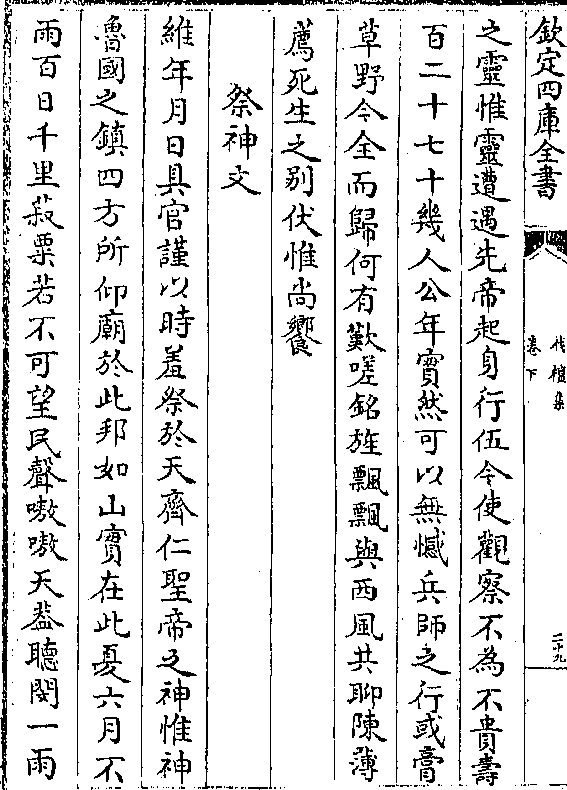 欽定四庫全書
伐檀集
卷下
二十九
之靈惟靈遭遇先帝起身行伍今使觀察不為不貴壽
百二十七十幾人公年實然可以無憾兵師之行或膏
草野今全而歸何有歎嗟銘旌飄飄與西風共聊陳薄
薦死生之别伏惟尚饗
祭神文
維年月日具官謹以時羞祭於天齊仁聖帝之神惟神
魯國之鎮四方所仰廟於此邦如山實在此憂六月不
雨百日千里菽粟若不可望民聲嗷嗷天蓋聽聞一雨